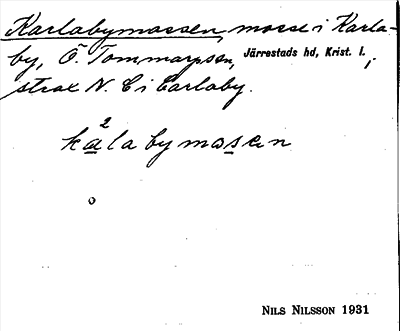 Karlabymossen, mosse i Karla-
by, Ö. Tommarpsn, Järrestads hd, Krist. l.,
strax N. C i Carlaby.
2
kalabymosen
o
NILS NILSSON 1931